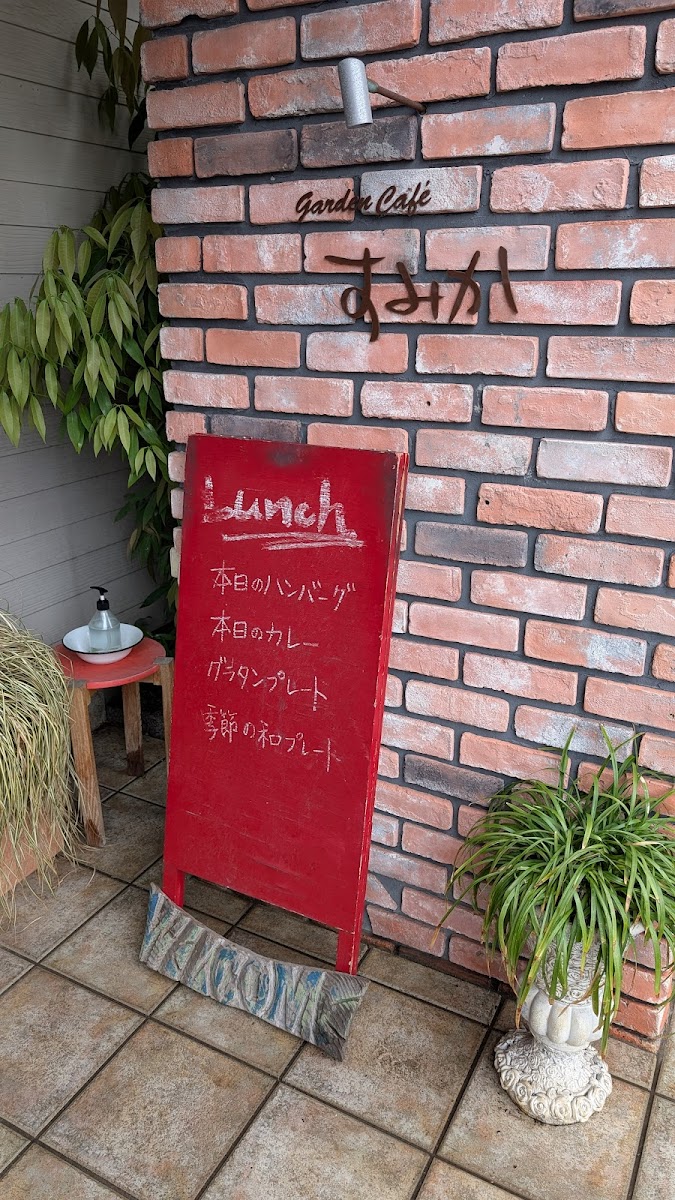 Garden Café
すみか
Lunch
本日のハンバーグ
本日のカレー
グラタンプレート
季節の和プレート
WELCOME